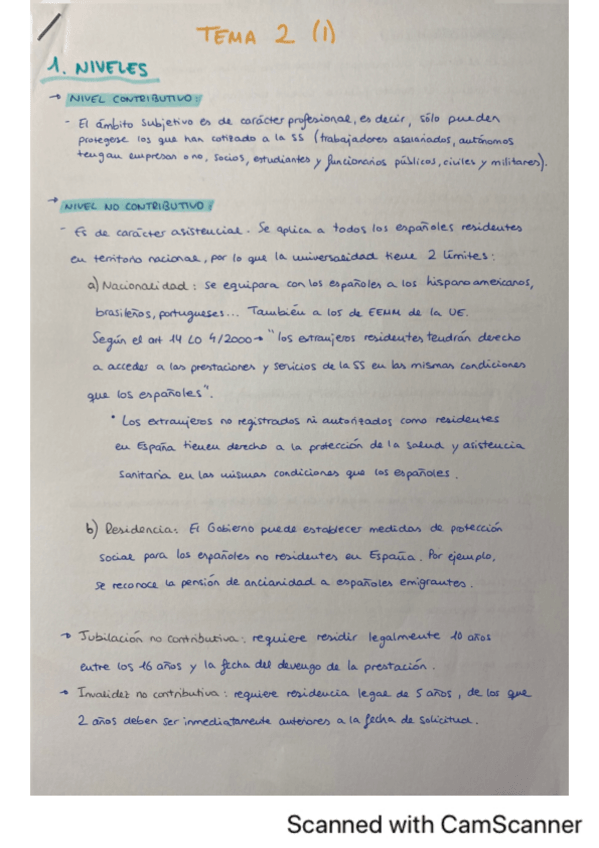 TEMA 2 (1)
1. NIVELES
→ NIVEL CONTRIBUTIVO:
- El ámbito subjetivo es de carácter profesional, es decir, sólo pueden
protegerse los que han cotizado a la SS (trabajadores asalariados, autónomos
tengan empresas o no, socios, estudiantes y funcionarios públicos, civiles y militares).
→ NIVEL NO CONTRIBUTIVO:
- Es de carácter asistencial. Se aplica a todos los españoles residentes
en territorio nacional, por lo que la universalidad tiene 2 límites:
a) Nacionalidad: se equipara con los españoles a los hispanoamericanos,
brasileños, portugueses... También a los de EEMM de la UE.
Según el art 14 LO 4/2000→ "los extranjeros residentes tendrán derecho
a acceder a las prestaciones y servicios de la SS en las mismas condiciones
que los españoles".
* Los extranjeros no registrados ni autorizados como residentes
en España tienen derecho a la protección de la salud y asistencia
sanitaria en las mismas condiciones que los españoles.
b) Residencia: El Gobierno puede establecer medidas de protección
social para los españoles no residentes en España. Por ejemplo,
se reconoce la pensión de ancianidad a españoles emigrantes.
→ Jubilación no contributiva: requiere residir legalmente 10 años
entre los 16 años y la fecha del devengo de la prestación.
→ Invalidez no contributiva: requiere residencia legal de 5 años, de los que
2 años deben ser inmediatamente anteriores a la fecha de solicitud.
Scanned with CamScanner